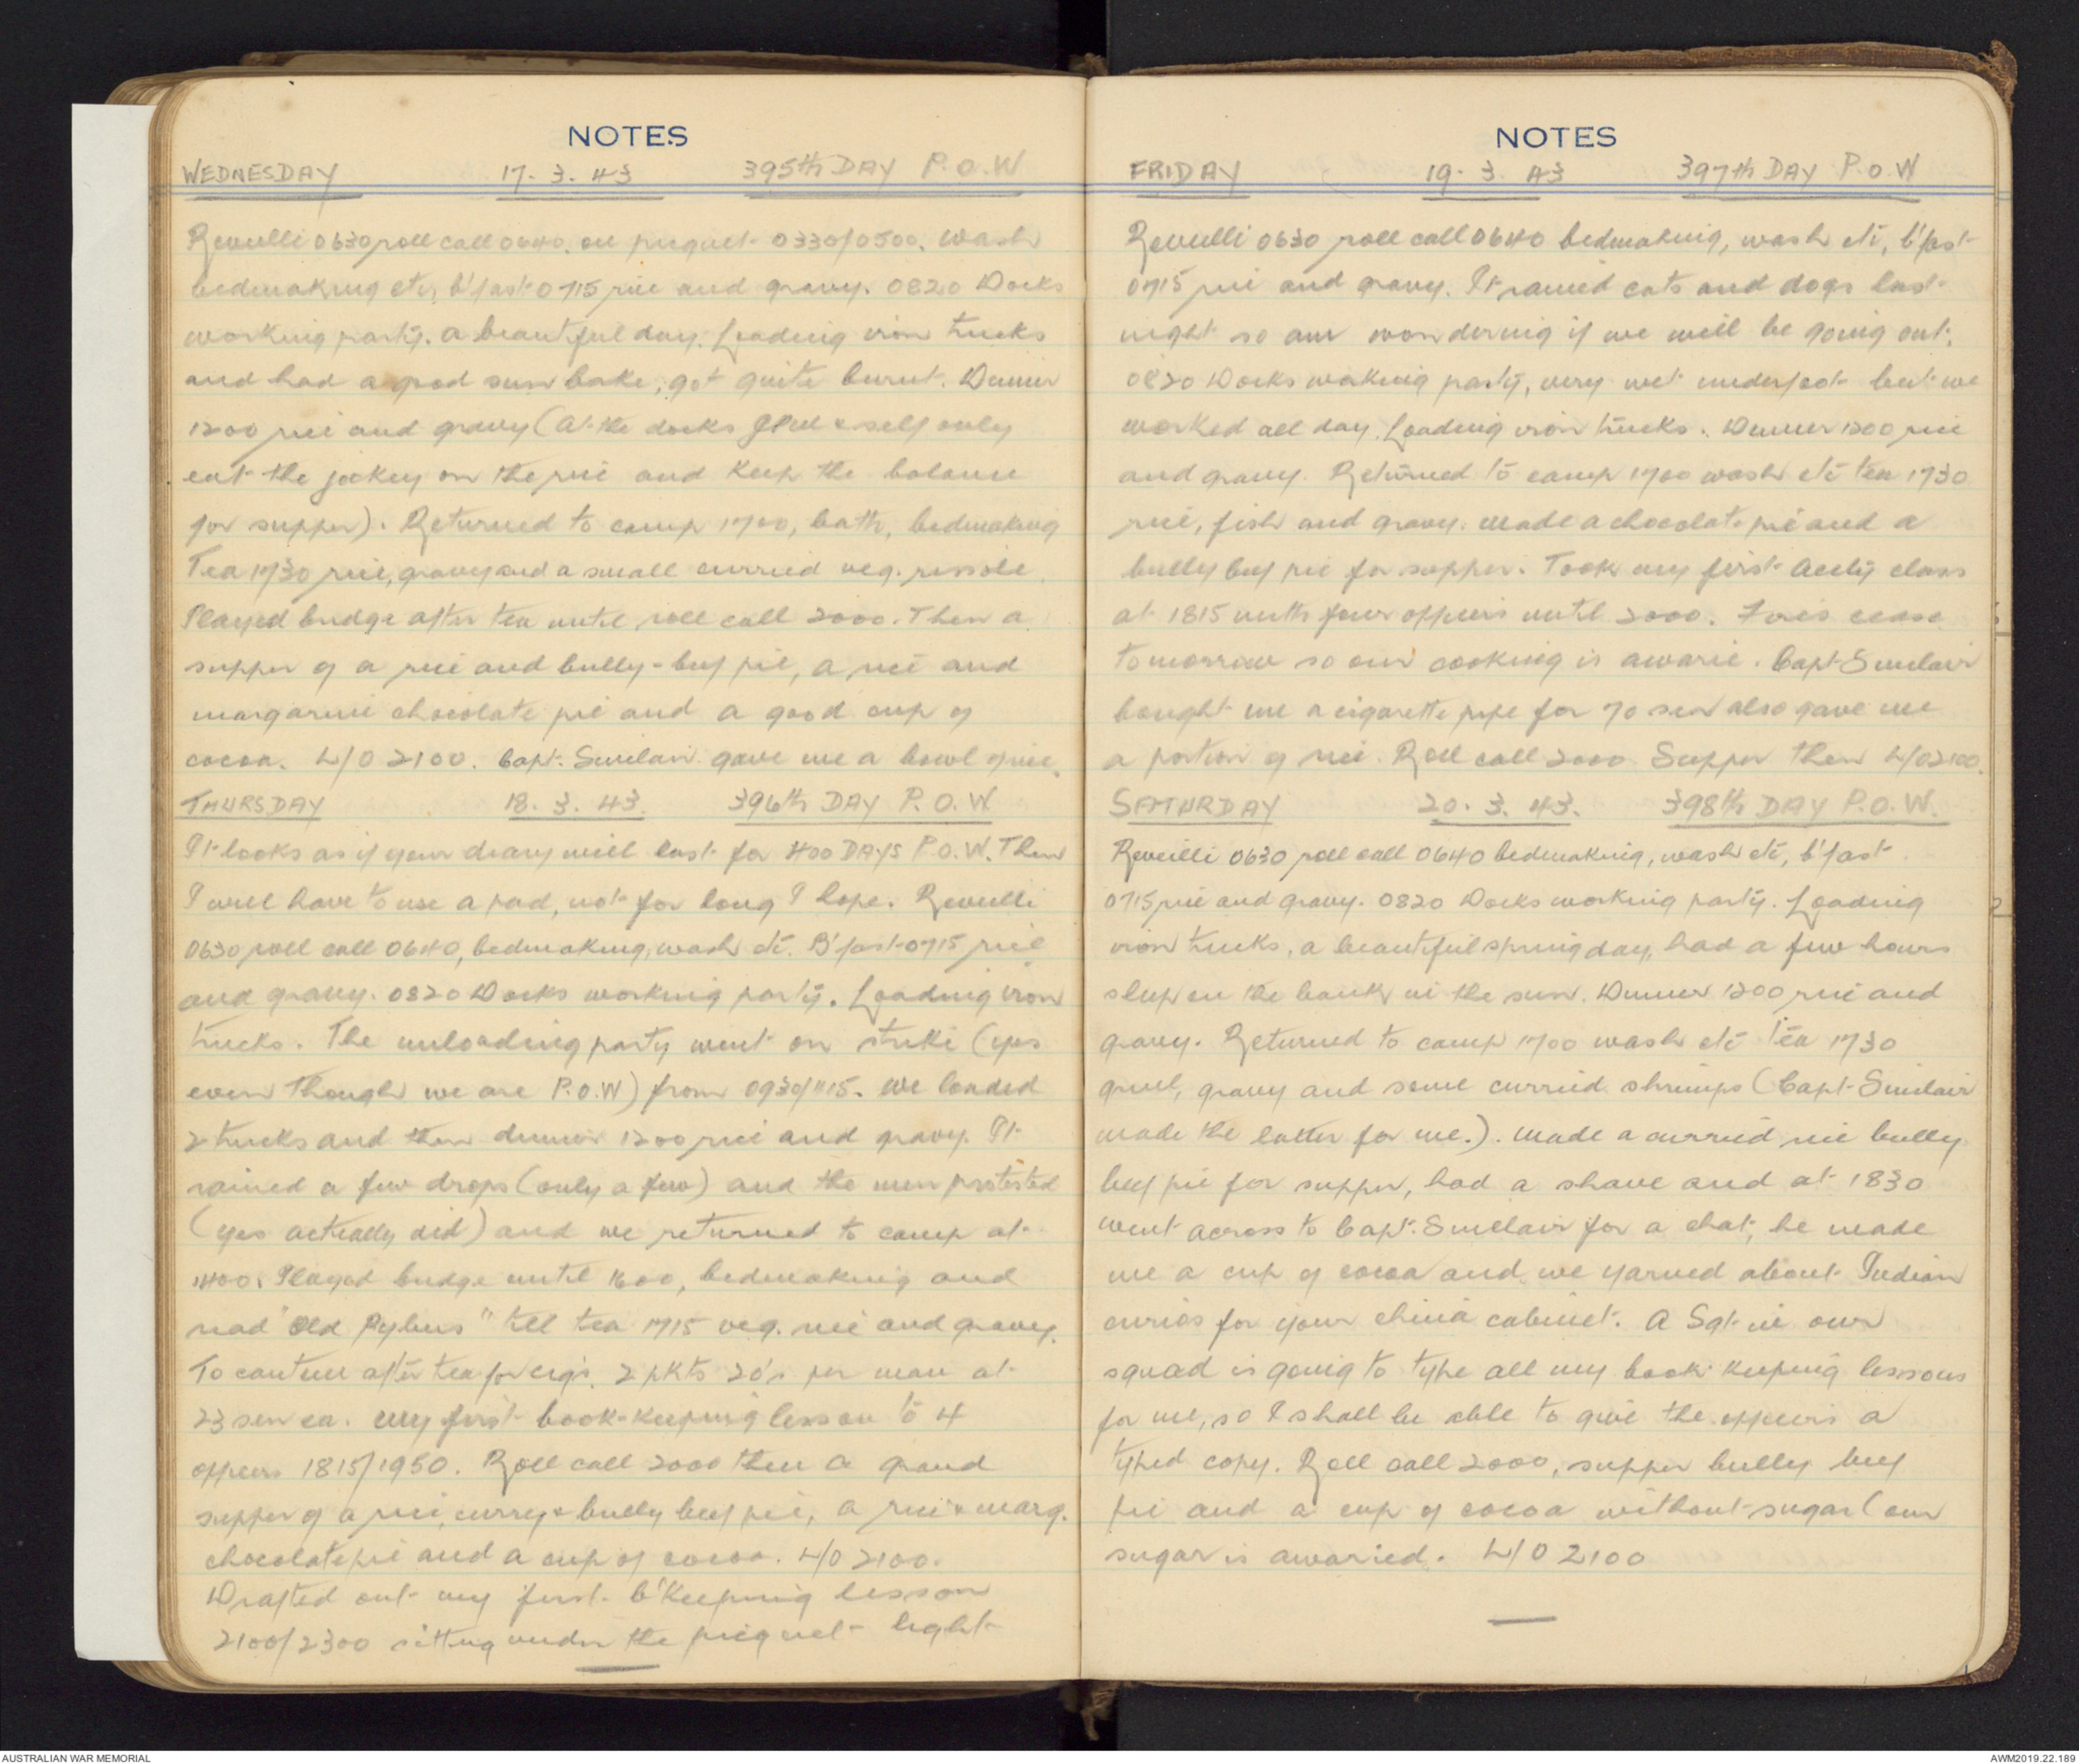 NOTES
WEDNESDAY 17. 3. 43 395th DAY P.O.W
Reveilli 0630 roll call 0640, on picquet 0330/0500, wash
bedmaking etc, b'fast 0715 rice and gravy. 0820 Docks
working party. a beautiful day. Loading iron trucks
and had a good sun bake, got quite burnt. Dinner
1200 rice and gravy (at the docks & self only
eat the jockey on the rice and keep the balance
for supper). Returned to camp 1700, bath, bedmaking
Tea 1730 rice, gravy and a small curried veg. rissole
Played bridge after tea until roll call 2000. Then a
supper of a rice and bully-beef pie, a rice and
margarine chocolate pie and a good cup of
cocoa. L/O 2100. Capt. Sinclair gave me a bowl of rice.
THURSDAY 18. 3. 43. 396th DAY P.O.W.
It looks as if your diary will last for 400 DAYS P.O.W. Then
I will have to use a pad, not for long I hope. Reveilli
0630 roll call 0640, bedmaking, wash etc. B'fast 0715 rice
and gravy. 0820 Docks working party. Loading iron
trucks. The unloading party went on strike (yes
even though we are P.O.W) from 0930/1115. We loaded
2 trucks and then dinner 1200 rice and gravy. It
rained a few drops (only a few) and the men protested
(yes actually did) and we returned to camp at
1400. Played bridge until 1600, bedmaking and
read "Old Pybus" till tea 1715 veg. rice and gravy.
To canteen after tea for cigs. 2 pkts 20's per man at
23 sen ea. My first book-keeping lesson to 4
officers 1815/1950. Roll call 2000 then a grand
supper of a rice, curry & bully beef pie, a rice & marg.
chocolate pie and a cup of cocoa. L/O 2100.
Drafted out my first b'keeping lesson
2100/2300 sitting under the picquet light
NOTES
FRIDAY 19. 3. 43 397th DAY P.O.W
Reveilli 0630 roll call 0640 bedmaking, wash etc, b'fast
0715 rice and gravy. It rained cats and dogs last
night so am wondering if we will be going out.
0820 Docks working party, very wet underfoot but we
worked all day. Loading iron trucks. Dinner 1200 rice
and gravy. Returned to camp 1700 wash etc tea 1730
rice, fish and gravy. Made a chocolate pie and a
bully beef pie for supper. Took my first Acctcy class
at 1815 with four officers until 2000. Fires cease
tomorrow so our cooking is awarie. Capt Sinclair
bought me a cigarette pipe for 70 sen also gave me
a portion of rice. Roll call 2000 Supper then L/O 2100.
SATURDAY 20. 3. 43. 398th DAY P.O.W.
Reveilli 0630 roll call 0640 bedmaking, wash etc, b'fast
0715 rice and gravy. 0820 Docks working party. Loading
iron trucks, a beautiful spring day, had a few hours
sleep on the bank in the sun. Dinner 1200 rice and
gravy. Returned to camp 1700 wash etc Tea 1730
gruel, gravy and some curried shrimps (Capt Sinclair
made the latter for me.). Made a curried rice bully
beef pie for supper, had a shave and at 1830
went across to Capt. Sinclair for a chat, he made
me a cup of cocoa and we yarned about Indian
curios for your china cabinet. A Sgt in our
squad is going to type all my book keeping lessons
for me, so I shall be able to give the officers a
typed copy. Roll call 2000, supper bully beef
pie and a cup of cocoa without sugar (our
sugar is awaried. L/O 2100
AUSTRALIAN WAR MEMORIAL
AWM2019.22.189